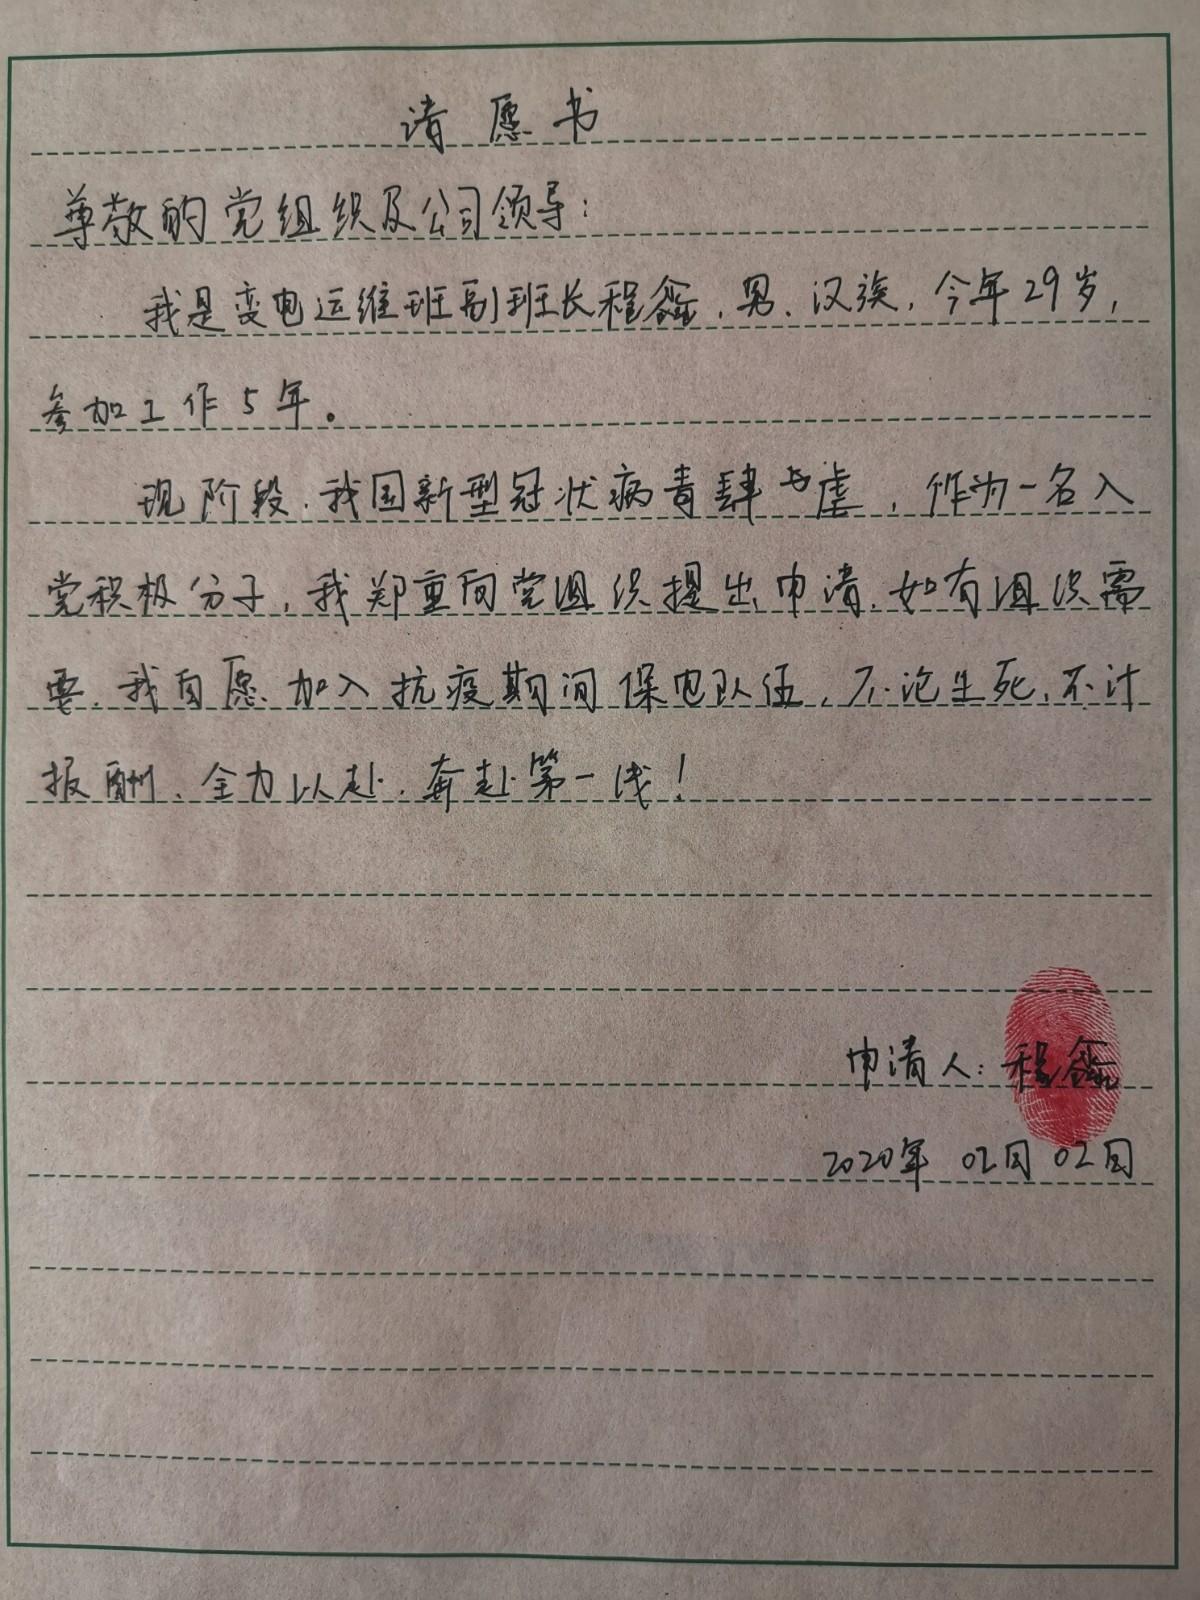 请愿书
尊敬的党组织及公司领导：
我是变电运维班副班长程鑫，男、汉族，今年29岁，
参加工作5年。
现阶段，我国新型冠状病毒肆虐，作为一名入
党积极分子，我郑重向党组织提出申请，如有组织需
要，我自愿加入抗疫期间保电队伍，不论生死，不计
报酬、全力以赴，奔赴第一线！
申请人：程鑫
2020年02月02日